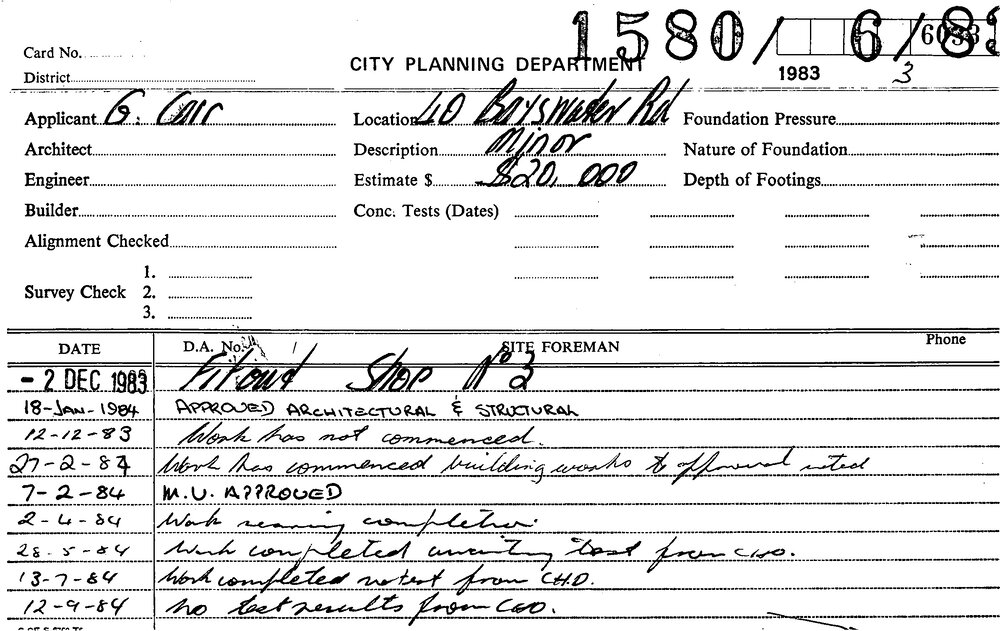 1580/ 6/83
6033
Card No.
CITY PLANNING DEPARTMENT
1983 3
District
Applicant G. Carr Location 40 Bayswater Rd Foundation Pressure
Architect Description Minor Nature of Foundation
Engineer Estimate $ $20,000 Depth of Footings
Builder Conc. Tests (Dates)
Alignment Checked
1.
Survey Check 2.
3.
DATE D.A. No. SITE FOREMAN Phone
- 2 DEC 1983 Fitout Shop No 3
18-JAN-1984 APPROVED ARCHITECTURAL & STRUCTURAL
12-12-83 Work has not commenced.
27-2-84 Work has commenced building works to approval noted
7-2-84 M.U. APPROVED
2-4-84 Work nearing completion.
28-5-84 Work completed awaiting test from
13-7-84 Work completed no test from
12-9-84 No test results from